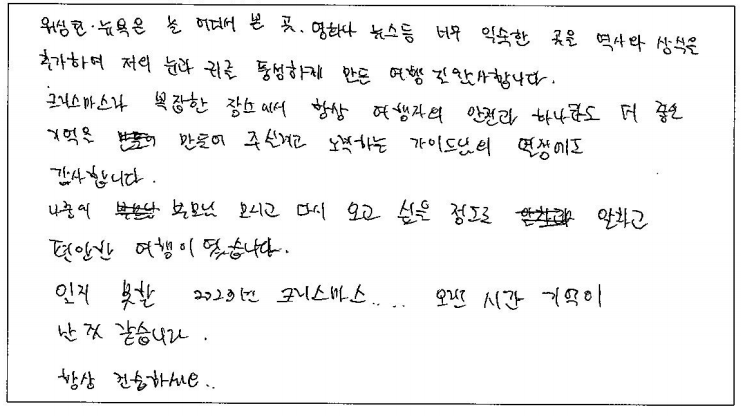 워싱턴·뉴욕은 늘 어디서 본 곳. 영화나 뉴스등 너무 익숙한 곳을 역사와 상식을
추가하여 저의 눈과 귀를 풍성하게 만든 여행 감사합니다.
크리스마스라 복잡한 장소에서 항상 여행자의 안전과 하나라도 더 좋은
기억을 만들어 주실려고 노력하는 가이드님의 열정에도
감사합니다.
나중에 부모님 모시고 다시 오고 싶을 정도로 알차고
편안한 여행이었습니다.
잊지 못할 크리스마스.... 오랜 시간 기억이
난 것 같습니다.
항상 건승하세요..